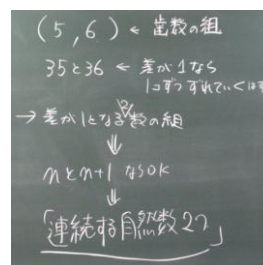 (5,6) ← 歯数の組
35と36 ← 差が1なら
1コずつずれていくはず
→ 差が1となる2数の組
⇓
nとn+1 ならOK
⇓
「連続する自然数2つ」